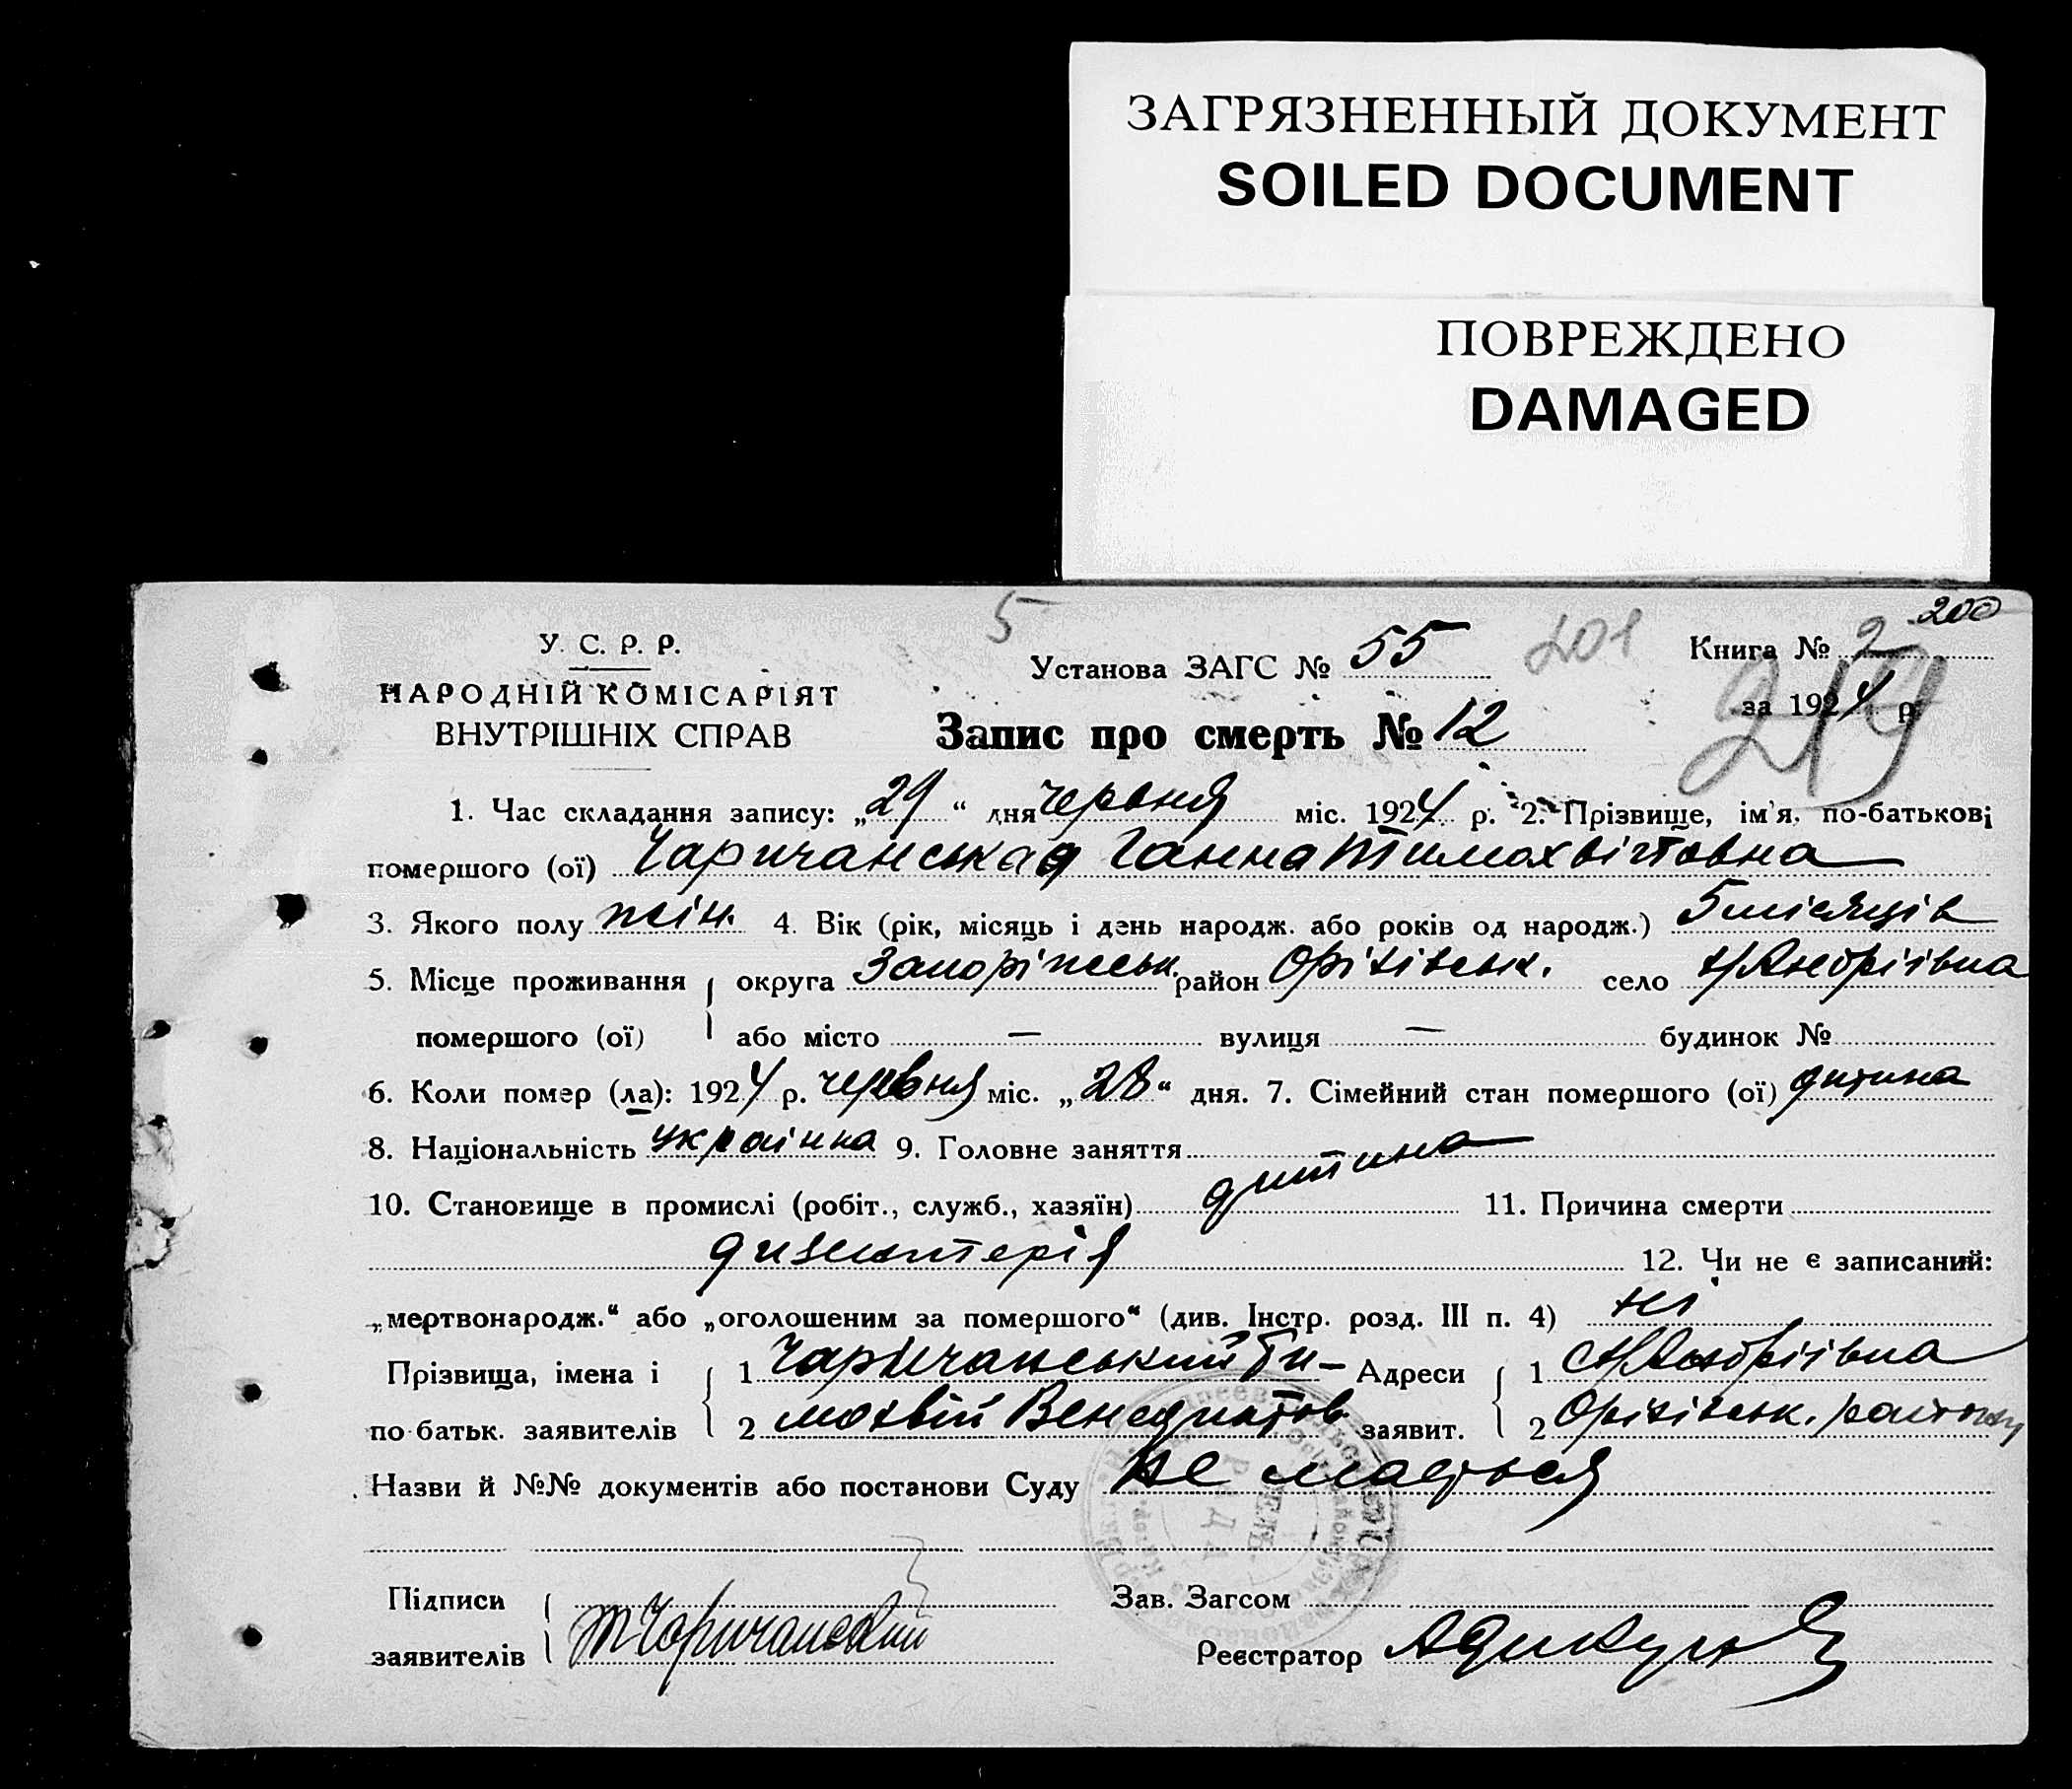 ЗАГРЯЗНЕННЫЙ ДОКУМЕНТ
SOILED DOCUMENT
ПОВРЕЖДЕНО
DAMAGED
200
5
У. С. Р. Р.
Установа ЗАГС № 55
201
Книга № 2
НАРОДНІЙ КОМІСАРІЯТ
за 1924 р.
219
ВНУТРІШНІХ СПРАВ
Запис про смерть № 12
1. Час складання запису: „29“ дня червня міс. 1924 р. 2. Прізвище, ім'я, по-батькові
помершого (ої) Чаричанська Ганна Тимохвіївна
3. Якого полу жін. 4. Вік (рік, місяць і день народж. або років од народж.) 5 місяців
5. Місце проживання округа Запоріжськ. район Оріхівськ. село
помершого (ої) або місто — вулиця — будинок №
6. Коли помер (ла): 1924 р. червня міс. „28“ дня. 7. Сімейний стан помершого (ої) дитина
8. Національність українка 9. Головне заняття
10. Становище в промислі (робіт., служб., хазяїн) дитина 11. Причина смерти
дизентерія 12. Чи не є записаний:
„мертвонародж.“ або „оголошеним за помершого“ (див. Інстр. розд. III п. 4) ні
Прізвища, імена і 1 Чаричанський Ти- Адреси 1
по батьк. заявителів 2 мохвій Венедиктов. заявит. 2 Оріхівськ. району
Назви й №№ документів або постанови Суду не мається
Підписи Зав. Загсом
заявителів Т Чаричанский Реєстратор